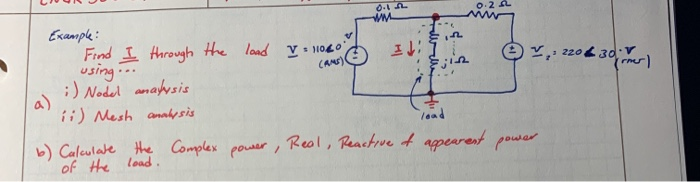 0.1 Ω
0.2 Ω
Example:
Find I through the load
using ...
V = 110∠0° V
(RMS)
I ↓
1Ω
j1Ω
V₂ = 220∠30° V
(rms)
a)
i) Nodal analysis
ii) Mesh analysis
load
b) Calculate the Complex power, Real, Reactive & appearent power
of the load.